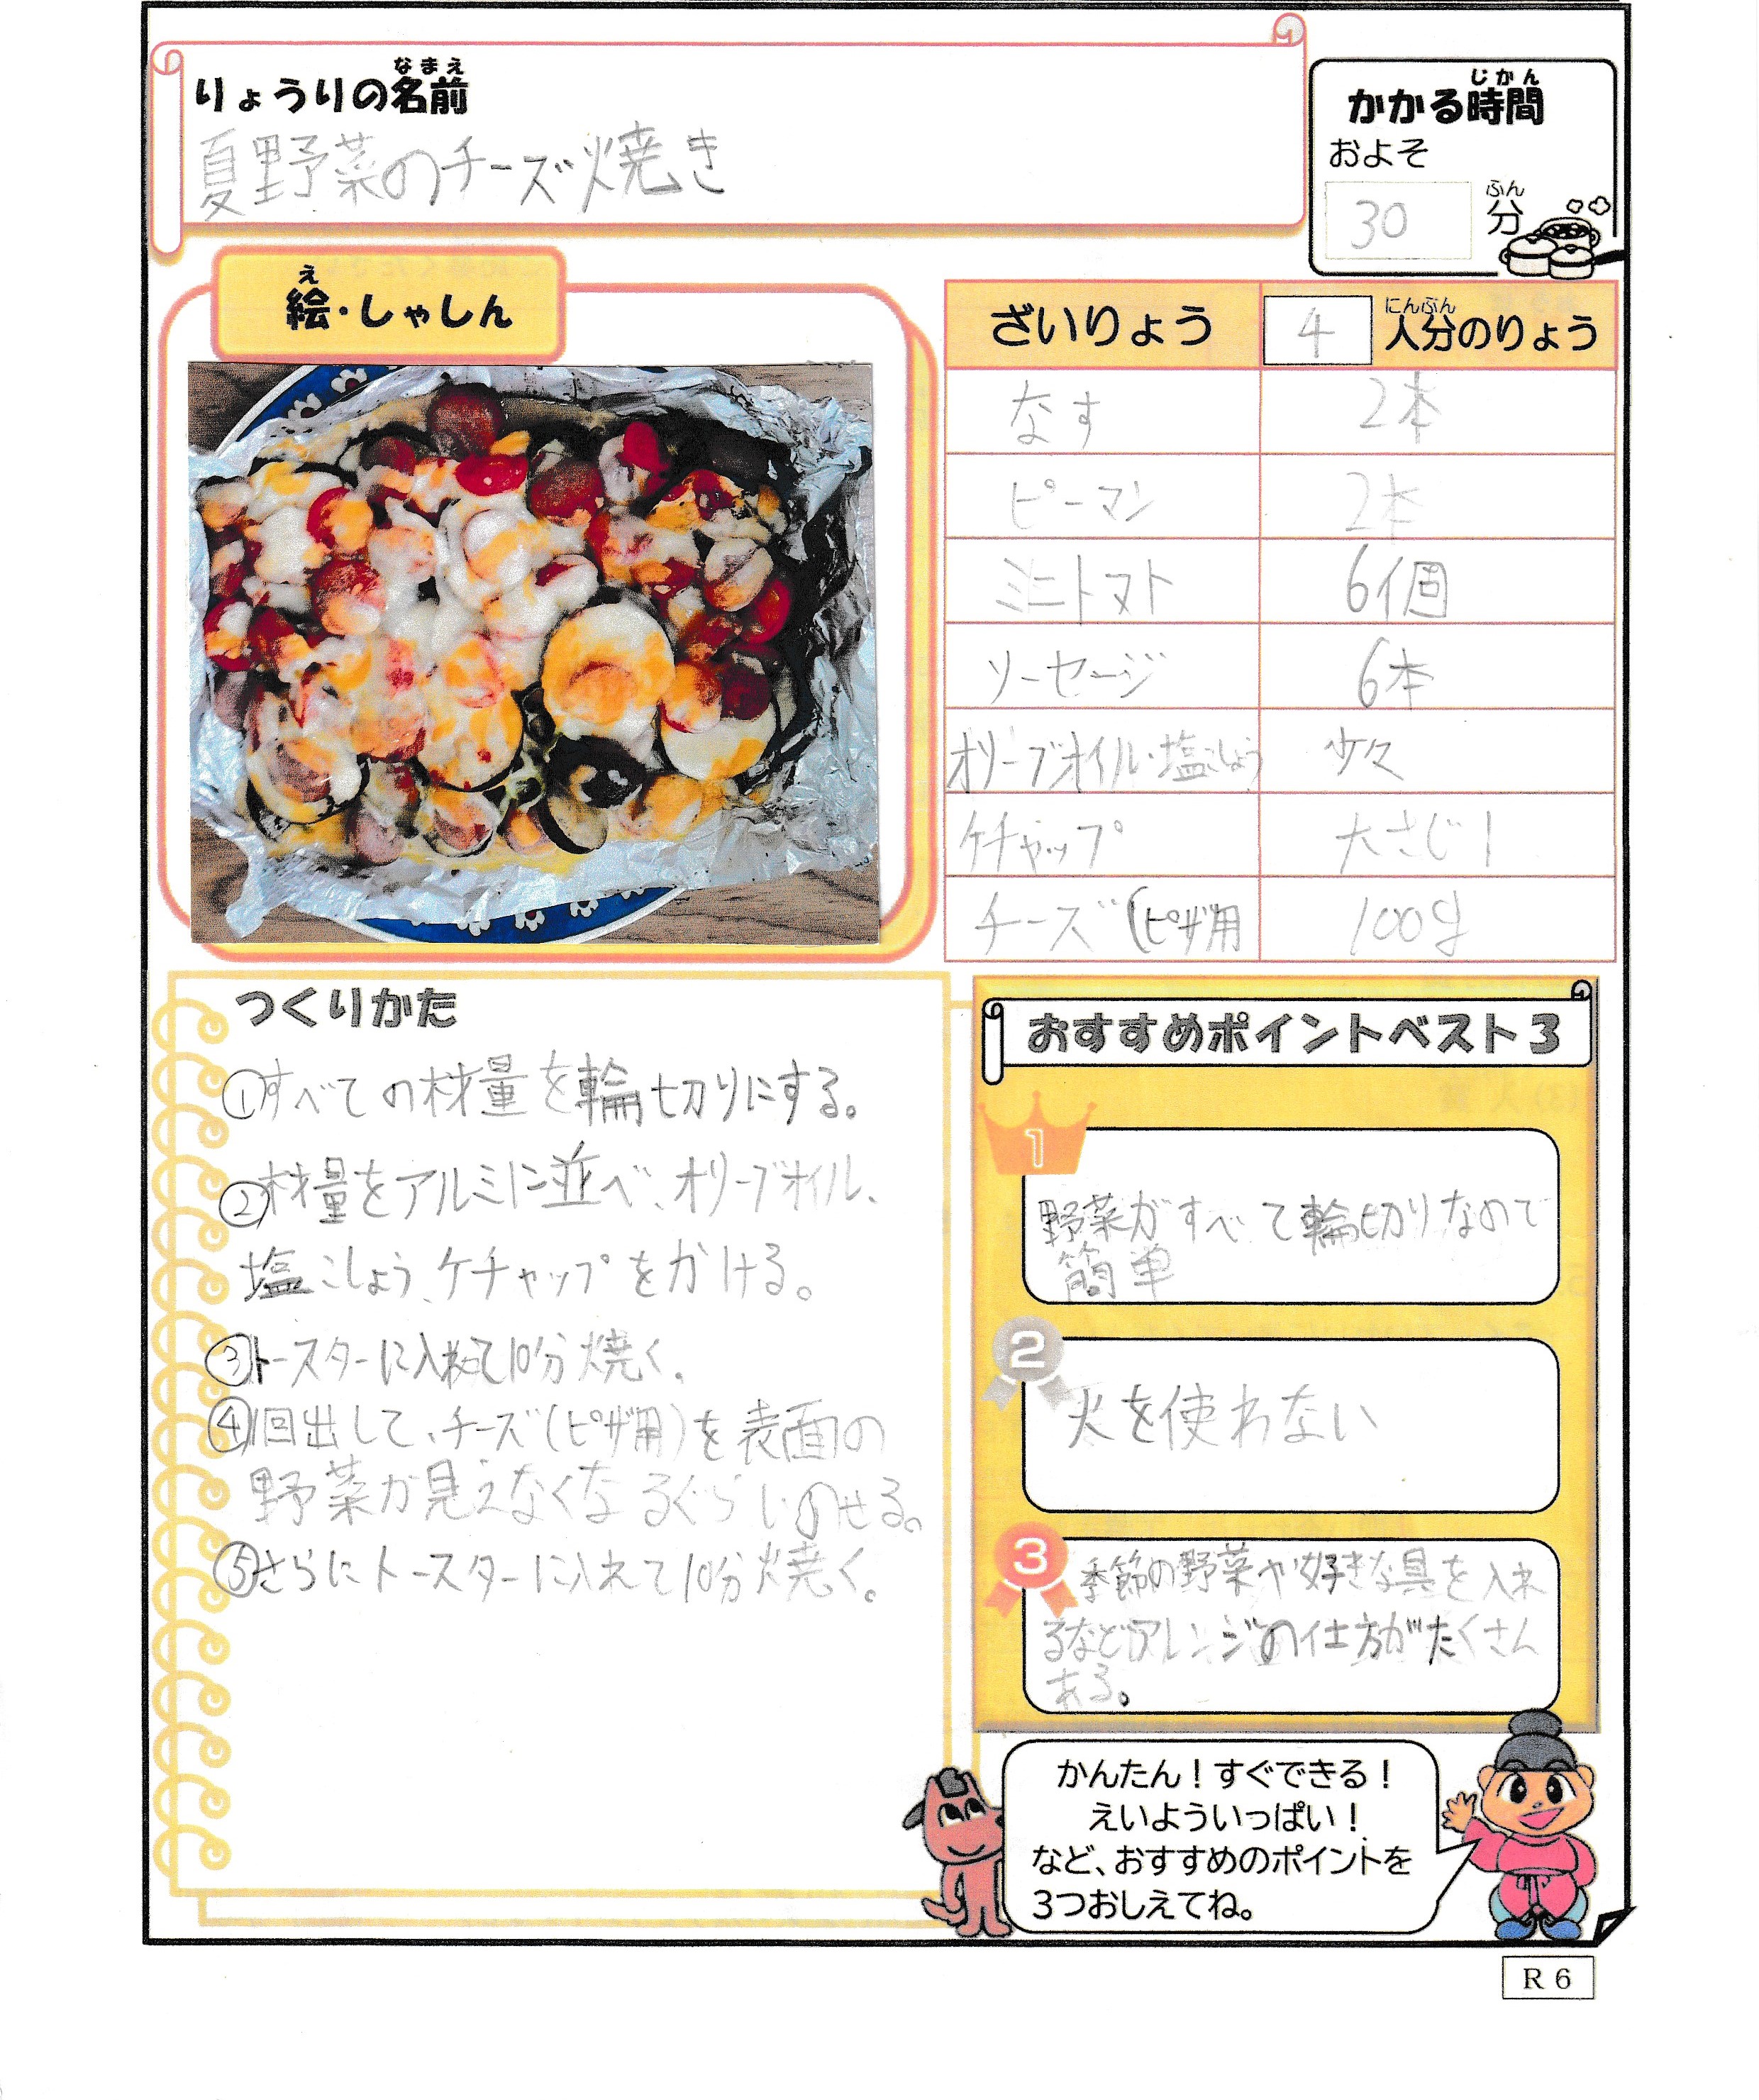 りょうりの名前
なまえ
夏野菜のチーズ焼き
かかる時間
じかん
およそ
30
分
ふん
絵・しゃしん
え
ざいりょう
4
人分のりょう
にんぶん
なす 2本
ピーマン 2本
ミニトマト 6個
ソーセージ 6本
オリーブオイル・塩こしょう 少々
ケチャップ 大さじ1
チーズ(ピザ用 100g
つくりかた
①すべての材量を輪切りにする。
②材量をアルミに並べ、オリーブオイル、
塩こしょう、ケチャップをかける。
③トースターに入れて10分焼く。
④1回出して、チーズ(ピザ用)を表面の
野菜が見えなくなるぐらいのせる。
⑤さらにトースターに入れて10分焼く。
おすすめポイントベスト3
1
野菜がすべて輪切りなので
簡単
2
火を使わない
3
季節の野菜や好きな具を入れ
るなどアレンジの仕方がたくさん
ある。
かんたん！すぐできる！
えいよういっぱい！
など、おすすめのポイントを
3つおしえてね。
R6